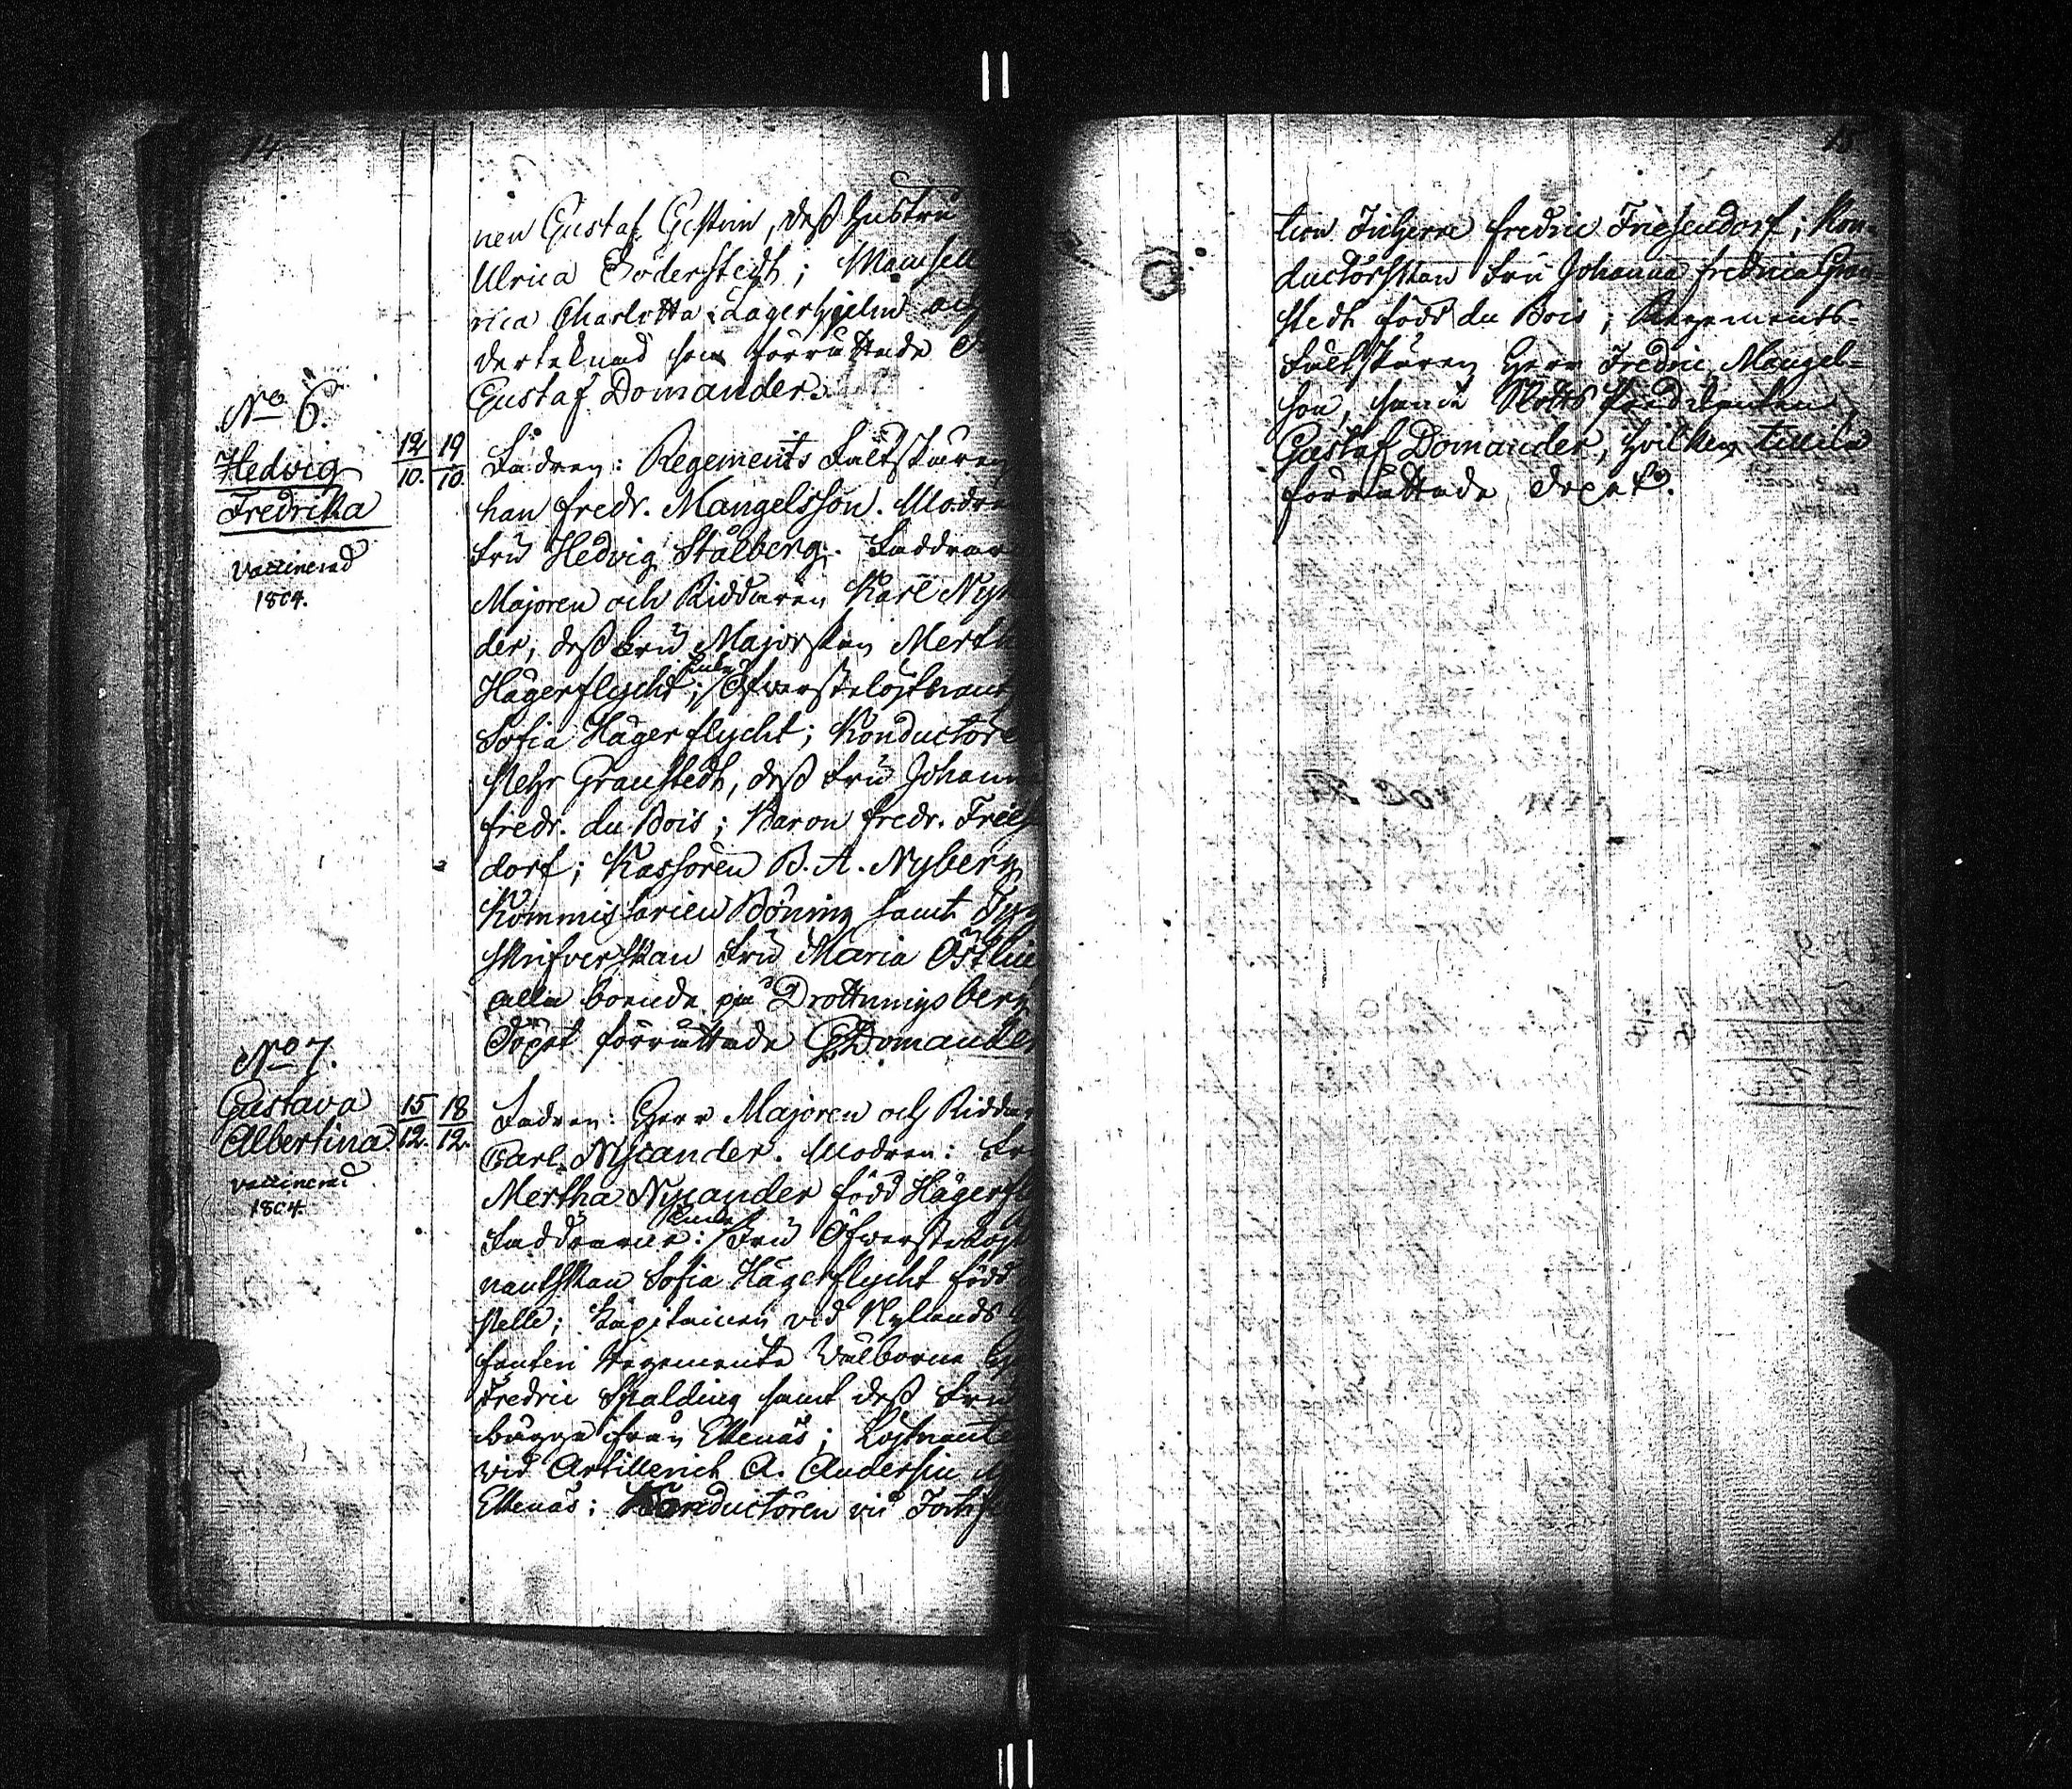 14
nen Gustaf Eckstein, dess Hustru
Ulrica Söderstedt; Mamsell
rica Charlotta Lagerhjelm
derteknad som förrättade
Gustaf Domander.
No 6.
Hedwig
Fredrika
vaccinerad
1804.
12/10. 19/10.
Fadren: Regements Fältskären
han Fredr. Mangelsson. Modren
Fru Hedvig Stålberg. Faddrar
Majoren och Riddaren Karl Nyk
der, dess Fru Majorskan Mertha
Hägerflycht; Enke Öfwerstelöjtnants
Sofia Hägerflycht; Konductören
Pehr Granstedt, dess Fru Johanna
Fredr. du Bois; Baron Fredr. Fries
dorf; Kassören B. A. Nyberg
Kommissarien Böning samt Tyg
skrifverskan Fru Maria Östlin
alla boende på Drottningsberg
Döpet förrättade G Domander
No 7.
Gustava
Albertina
vaccinerad
1804.
15/12. 18/12.
Fadren: Herr Majoren och Riddar
Carl Nycander. Modren: Fr
Mertha Nycander född Hägerfl
Faddrarne: Enke Fru Öfwerstelöjt
nantskan Sofia Hägerflycht född
Kapitainen vid Nylands
fanteri Regemente Wälborne
Fredric Spalding samt dess Fru
bägge från Ekenäs; Löjtnanten
vid Artilleriet A. Andersin
Ekenäs; Konductören vid Fortif
15
tion Friherre Fredric Friesendorf; Kon-
ductörskan Fru Johanna Fredrica Gran-
stedt född du Bois; Regements-
Fältskären Herr Fredric Mangel-
son, samt Slotts Predikanten
Gustaf Domander, hvilken tillika
förrättade Döpet.